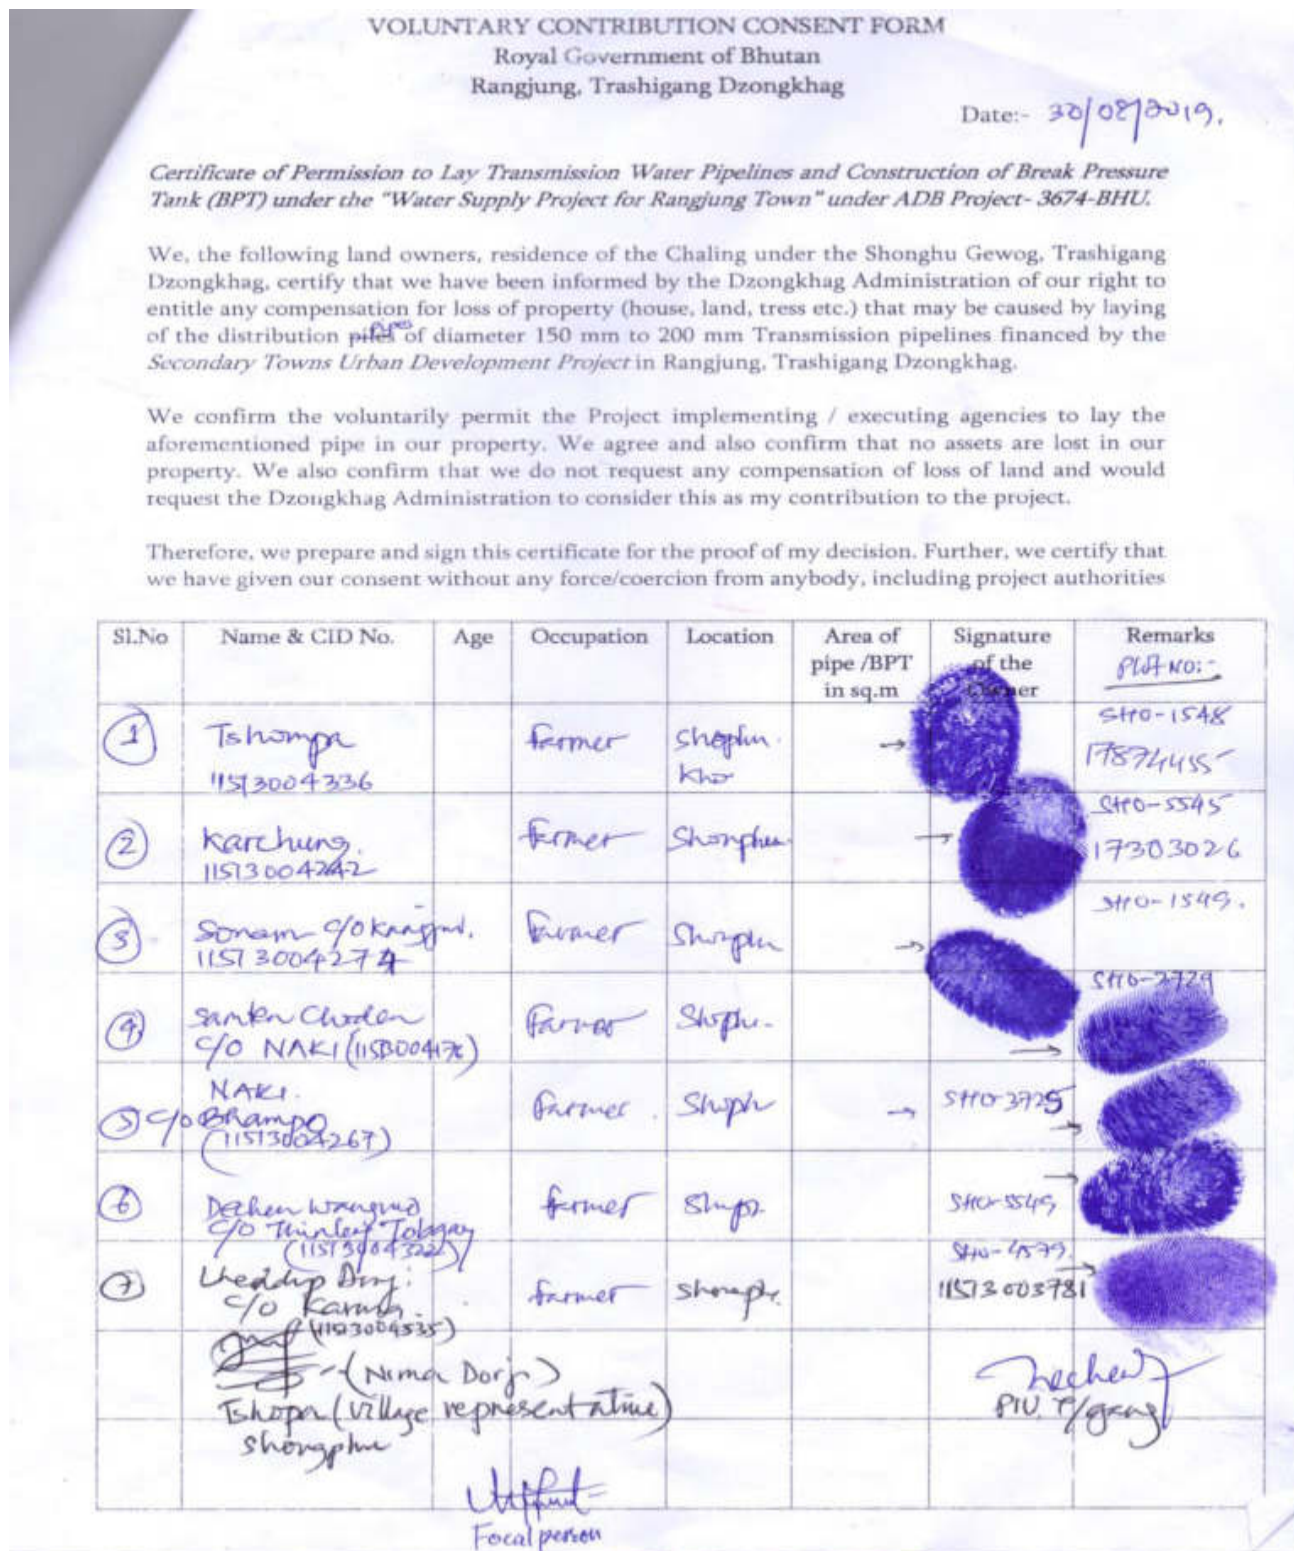 VOLUNTARY CONTRIBUTION CONSENT FORM
Royal Government of Bhutan
Rangjung, Trashigang Dzongkhag
Date:- 30/08/2019.
Certificate of Permission to Lay Transmission Water Pipelines and Construction of Break Pressure
Tank (BPT) under the "Water Supply Project for Rangjung Town" under ADB Project- 3674-BHU.
We, the following land owners, residence of the Chaling under the Shonghu Gewog, Trashigang
Dzongkhag, certify that we have been informed by the Dzongkhag Administration of our right to
entitle any compensation for loss of property (house, land, tress etc.) that may be caused by laying
of the distribution pipes of diameter 150 mm to 200 mm Transmission pipelines financed by the
Secondary Towns Urban Development Project in Rangjung, Trashigang Dzongkhag.
We confirm the voluntarily permit the Project implementing / executing agencies to lay the
aforementioned pipe in our property. We agree and also confirm that no assets are lost in our
property. We also confirm that we do not request any compensation of loss of land and would
request the Dzongkhag Administration to consider this as my contribution to the project.
Therefore, we prepare and sign this certificate for the proof of my decision. Further, we certify that
we have given our consent without any force/coercion from anybody, including project authorities
Sl.No Name & CID No. Age Occupation Location Area of pipe /BPT in sq.m Signature of the Owner Remarks
PLOT NO:-
1 Tshompa farmer SHO-1548
11513004336 Kho 17874455
2 Karchung. farmer Shonphu SHO-5545
11513004242 17303026
3 Sonam c/o farmer SHO-1549.
11513004274
4 Samten Choden farmer SHO-2729
c/o NAKI
5 NAKI. farmer SHO-3725
c/o Bhampo
(11513004267)
6 Dechen Wangmo farmer SHO-5549
c/o Thinley Tobgay
(11513004322)
7 Dorji farmer SHO-4579
c/o Karma 11513003781
(11513004535)
(Nima Dorji)
Tshopa (village representative)
Shongphu
PIU, T/gang
Focal person